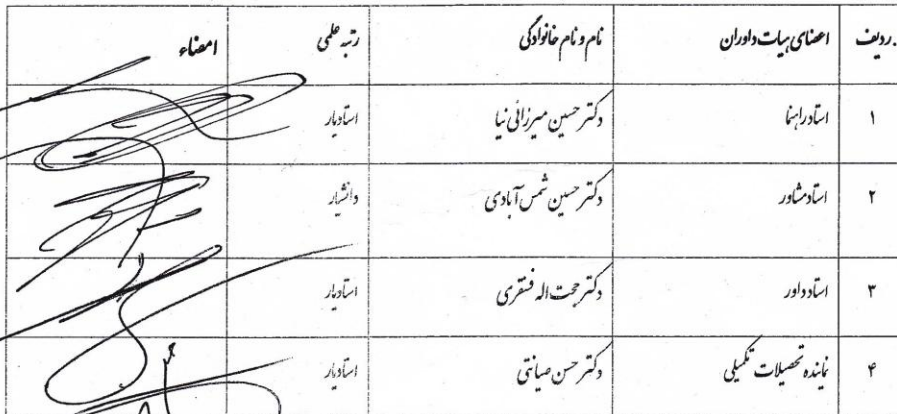 ردیف اعضای هیات داوران نام و نام خانوادگی رتبه علمی امضاء
۱ استاد راهنما دکتر حسین میرزائی نیا استادیار
۲ استاد مشاور دکتر حسین شمس آبادی دانشیار
۳ استاد داور دکتر حجت اله فسنقری استادیار
۴ نماینده تحصیلات تکمیلی دکتر حسن صیانتی استادیار